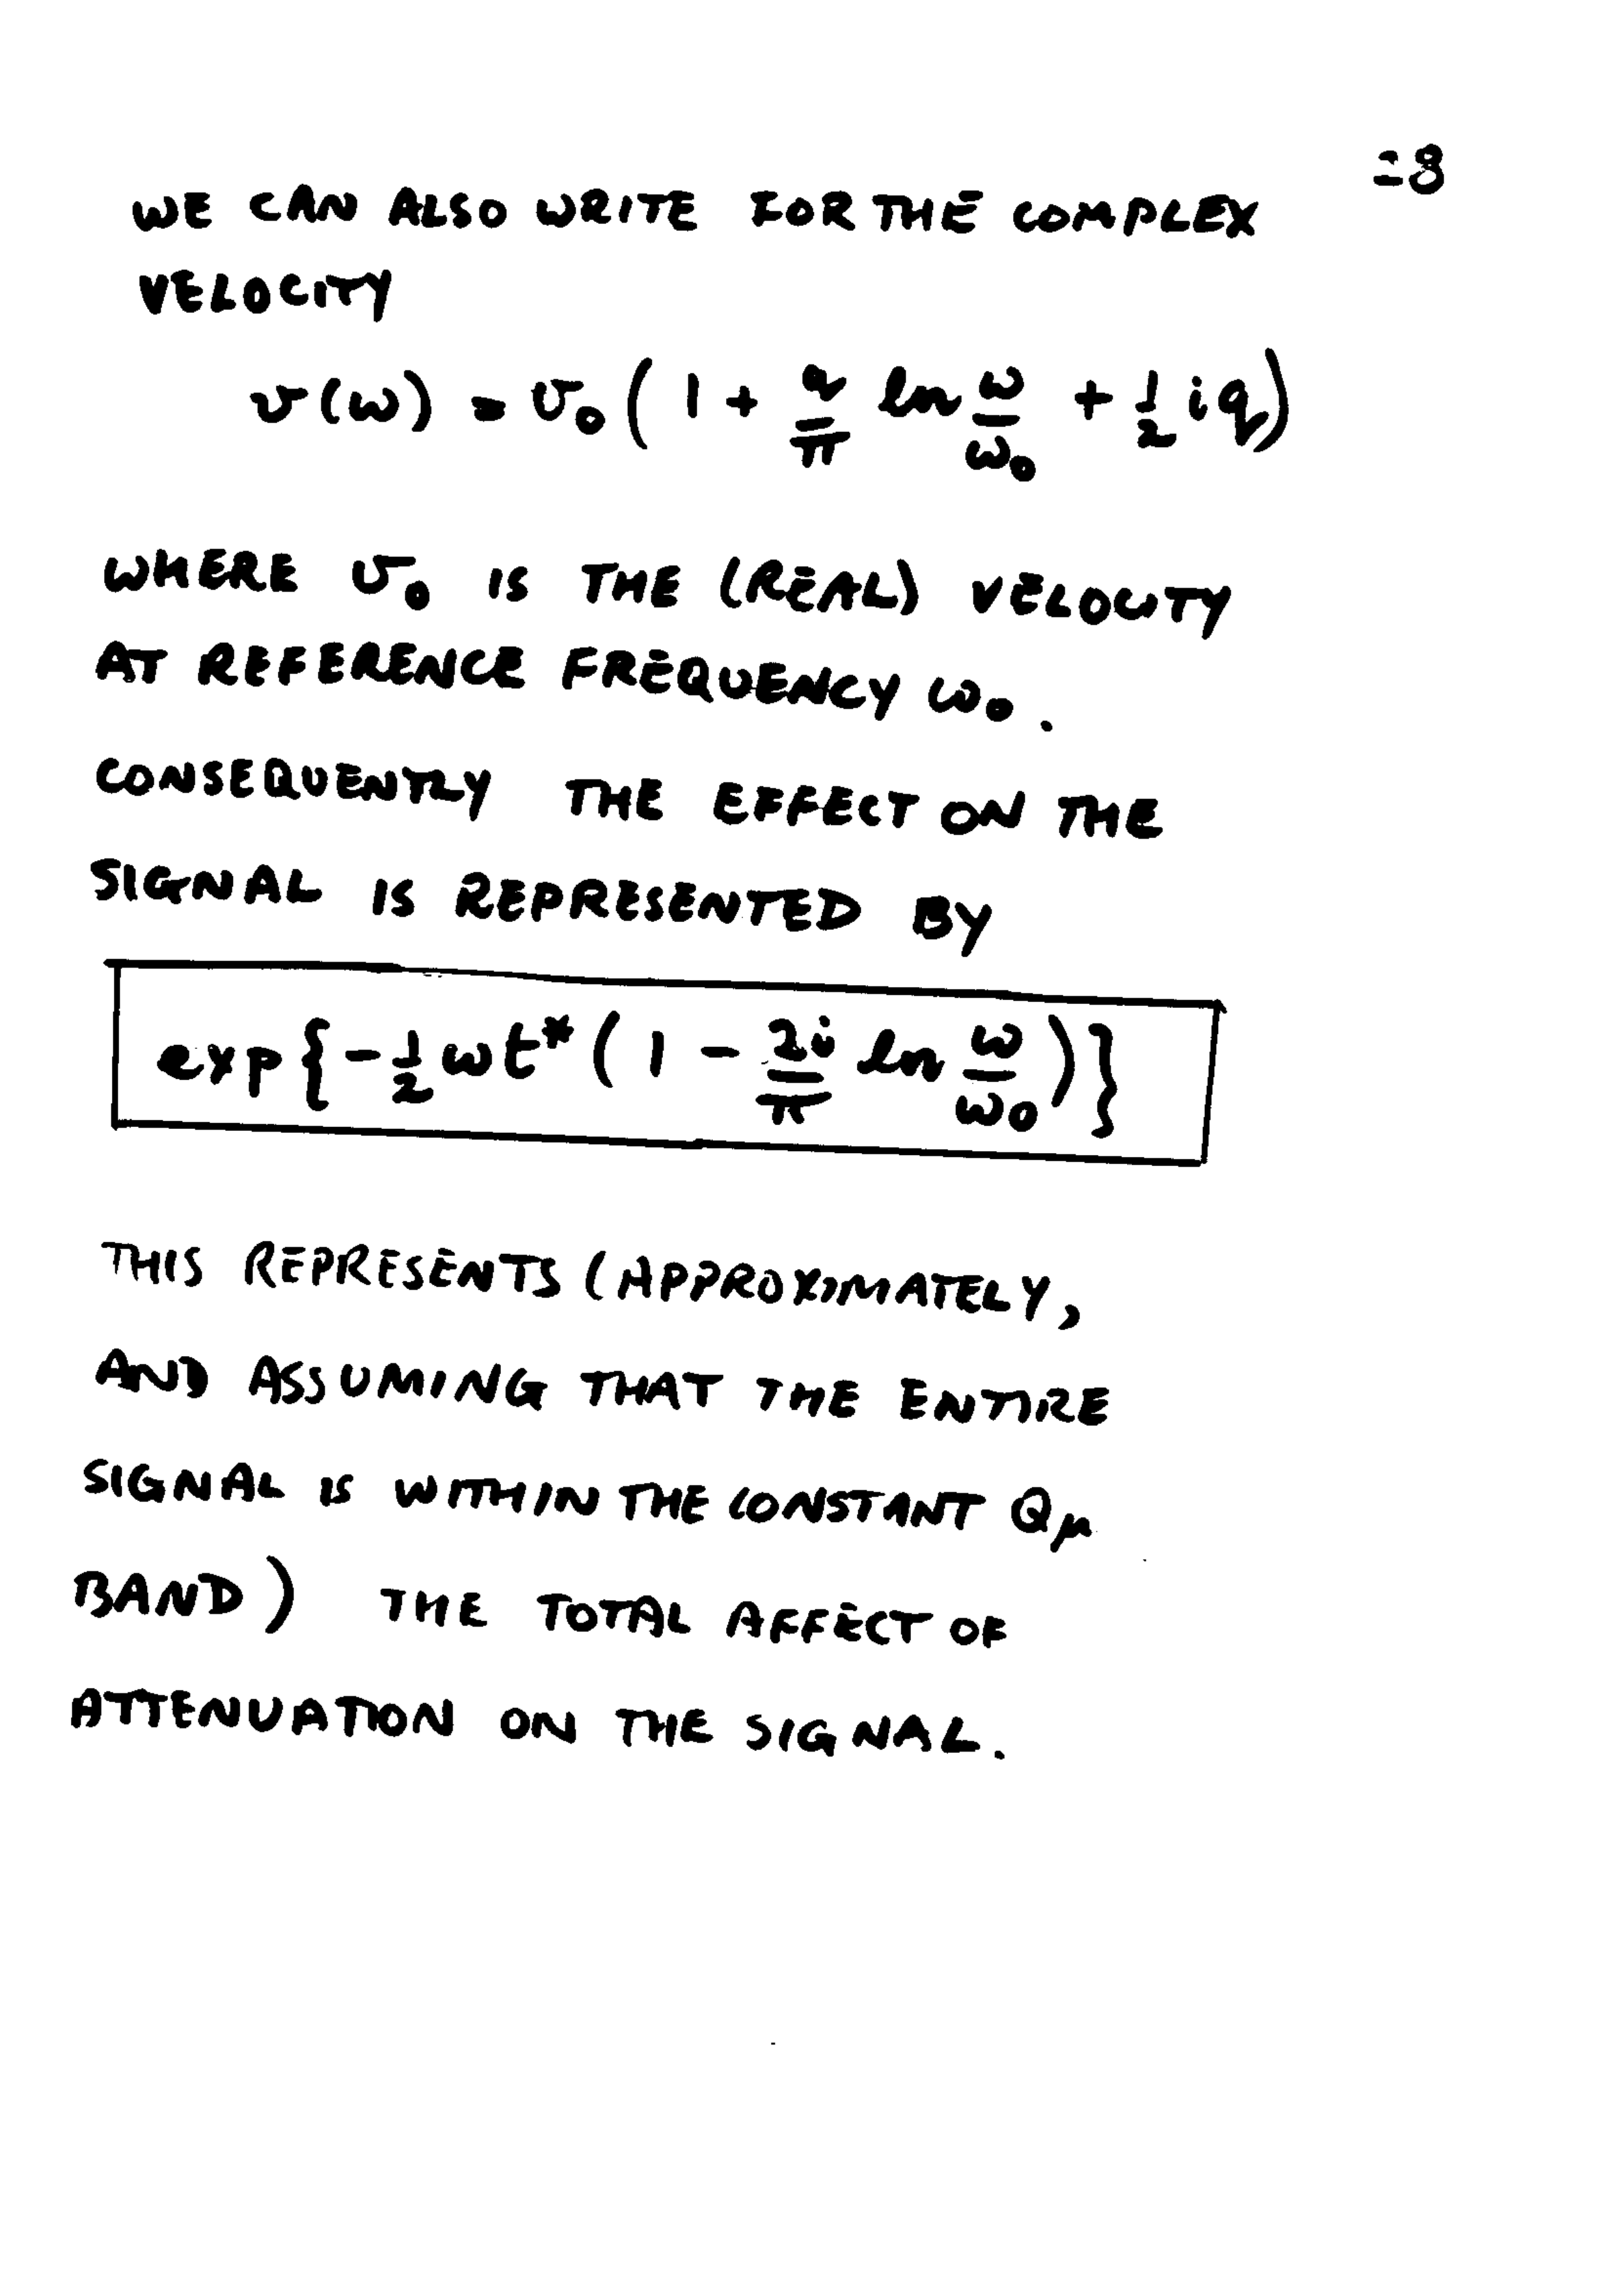 =8
WE CAN ALSO WRITE FOR THE COMPLEX
VELOCITY
v(ω) = v₀ ( 1 + q/π ln ω/ω₀ + ½ i q )
WHERE v₀ IS THE (REAL) VELOCITY
AT REFERENCE FREQUENCY ω₀.
CONSEQUENTLY THE EFFECT ON THE
SIGNAL IS REPRESENTED BY
exp{ -½ ωt* ( 1 - 2i/π ln ω/ω₀ ) }
THIS REPRESENTS (APPROXIMATELY,
AND ASSUMING THAT THE ENTIRE
SIGNAL IS WITHIN THE CONSTANT Qμ
BAND) THE TOTAL AFFECT OF
ATTENUATION ON THE SIGNAL.